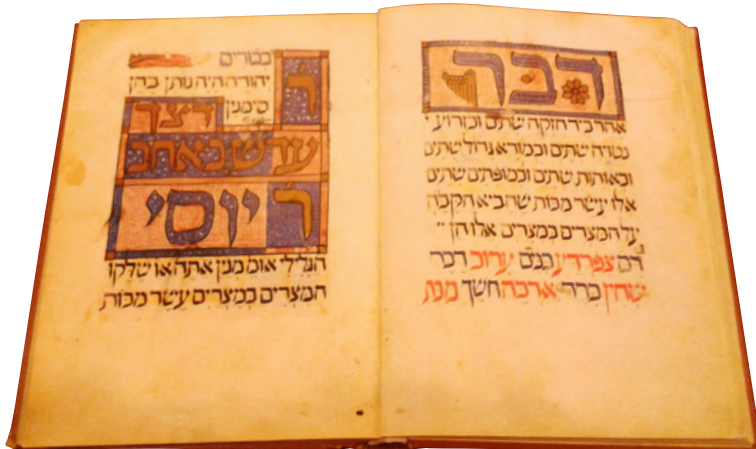 דבר
אחר ביד חזקה שתים ובזרוע
נטויה שתים ובמורא גדול שתים
ובאותות שתים ובמופתים שתים
אלו עשר מכות שהביא הקבה
על המצרים במצרים אלו הן
דם צפרדע כנים ערוב דבר
שחין ברד ארבה חשך מכת
בכורים
ר יהודה היה נותן בהן
סימנין דצך
עדש באחב
ר יוסי
הגלילי אומ מנין אתה או שלקו
המצרים במצרים עשר מכות